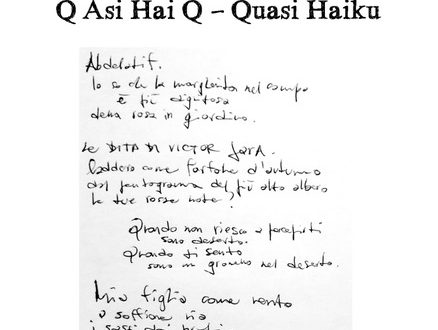 Q Asi Hai Q – Quasi Haiku
Abdelatif.
Io so che la margherita nel campo
è più dignitosa
della rosa in giardino.
Le DITA DI VICTOR Jara.
Caddero come farfalle d'autunno
dal pentagramma del più alto albero
le tue rosse note?
Quando non riesco a percepirti
sono deserto.
Quando ti sento
sono un granello nel deserto.
Mia figlia come vento
o soffione
i